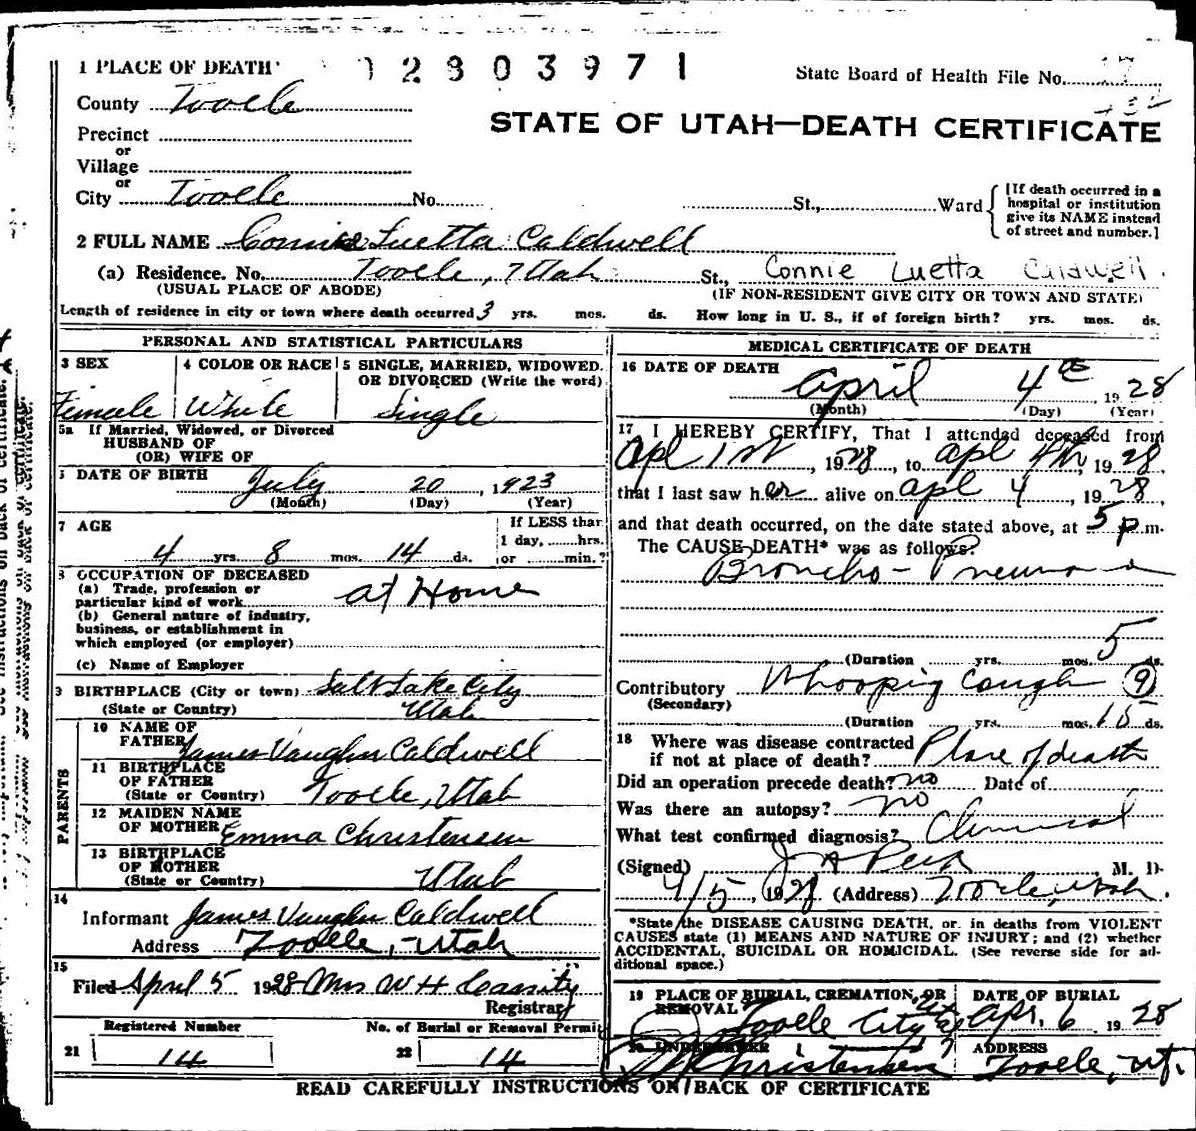 1 PLACE OF DEATH
2803971
State Board of Health File No.
County Tooele
STATE OF UTAH—DEATH CERTIFICATE
Precinct
or
Village
or
City Tooele No. St., Ward
[If death occurred in a
hospital or institution
give its NAME instead
of street and number.]
2 FULL NAME Connie Luetta Caldwell
(a) Residence. No. Tooele, Utah St., Connie Luetta Caldwell.
(USUAL PLACE OF ABODE) (IF NON-RESIDENT GIVE CITY OR TOWN AND STATE)
Length of residence in city or town where death occurred 3 yrs. mos. ds. How long in U. S., if of foreign birth? yrs. mos. ds.
PERSONAL AND STATISTICAL PARTICULARS
3 SEX 4 COLOR OR RACE 5 SINGLE, MARRIED, WIDOWED.
OR DIVORCED (Write the word)
Female White Single
5a If Married, Widowed, or Divorced
HUSBAND OF
(OR) WIFE OF
DATE OF BIRTH July 20, 1923
(Month) (Day) (Year)
7 AGE If LESS than
1 day, hrs.
4 yrs. 8 mos. 14 ds. or min.?
8 OCCUPATION OF DECEASED
(a) Trade, profession or
particular kind of work at Home
(b) General nature of industry,
business, or establishment in
which employed (or employer)
(c) Name of Employer
9 BIRTHPLACE (City or town) Salt Lake City
(State or Country) Utah
PARENTS
10 NAME OF
FATHER James Vaughn Caldwell
11 BIRTHPLACE
OF FATHER
(State or Country) Tooele, Utah
12 MAIDEN NAME
OF MOTHER Emma Christensen
13 BIRTHPLACE
OF MOTHER
(State or Country) Utah
14
Informant James Vaughn Caldwell
Address Tooele, Utah
15
Filed April 5 1928 Mrs W H Cassity
Registrar
Registered Number No. of Burial or Removal Permit
21 14 22 14
MEDICAL CERTIFICATE OF DEATH
16 DATE OF DEATH
April 4th 1928
(Month) (Day) (Year)
17 I HEREBY CERTIFY, That I attended deceased from
Apl 1st, 1928, to apl 4th, 1928
that I last saw her alive on apl 4, 1928,
and that death occurred, on the date stated above, at 5 p.m.
The CAUSE DEATH* was as follows:
Broncho-Pneumonia
(Duration yrs. mos. 5 ds.
Contributory Whooping Cough 9
(Secondary)
(Duration yrs. mos. 15 ds.
18 Where was disease contracted
if not at place of death? Place of death
Did an operation precede death? no Date of
Was there an autopsy? no
What test confirmed diagnosis?
(Signed) J A Peck M. D.
4/5, 1928 (Address) Tooele, Utah.
*State the DISEASE CAUSING DEATH, or. in deaths from VIOLENT
CAUSES state (1) MEANS AND NATURE OF INJURY; and (2) whether
ACCIDENTAL, SUICIDAL OR HOMICIDAL. (See reverse side for ad-
ditional space.)
19 PLACE OF BURIAL, CREMATION, OR
REMOVAL
DATE OF BURIAL
Tooele City Apr. 6 1928
20 UNDERTAKER ADDRESS
Christensen Tooele, Ut.
READ CAREFULLY INSTRUCTIONS ON BACK OF CERTIFICATE